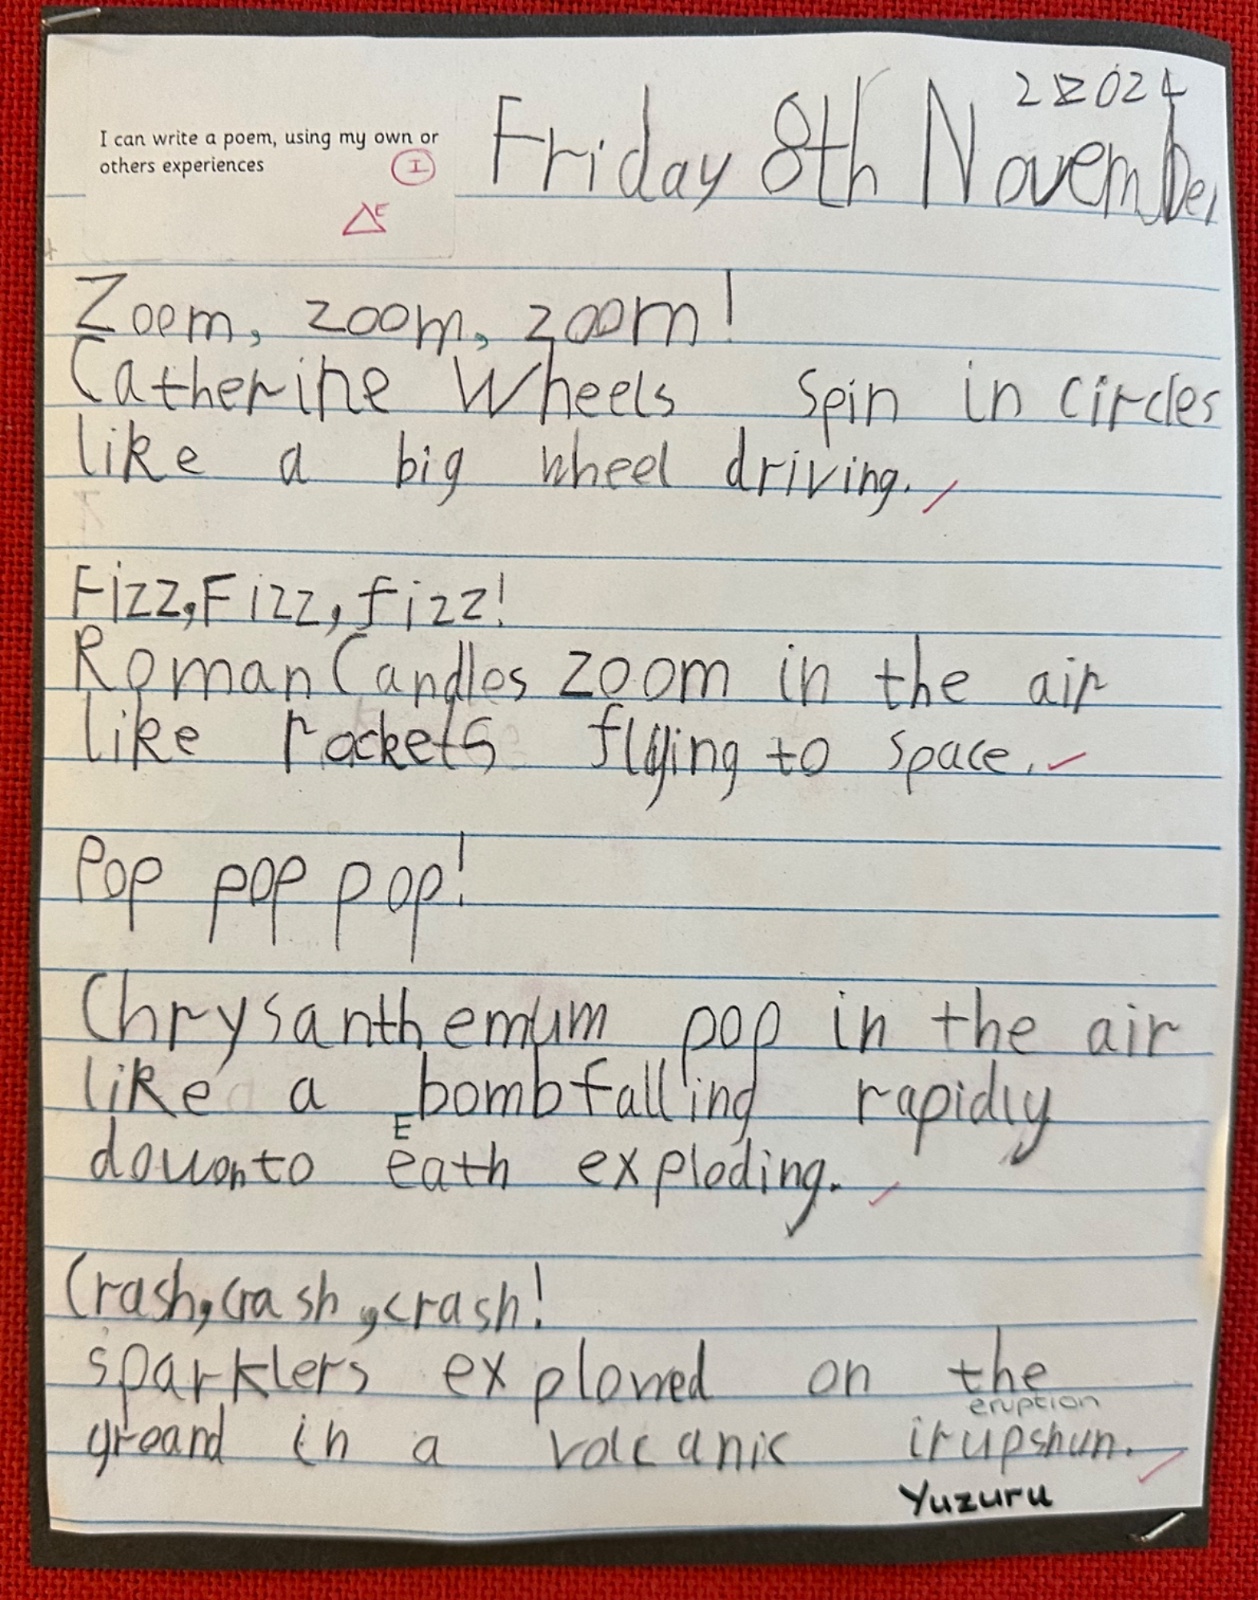 I can write a poem, using my own or
others experiences
I
E
2024
Friday 8th November
Zoom, zoom, zoom!
Catherine Wheels spin in circles
like a big wheel driving.
Fizz, Fizz, fizz!
Roman Candles zoom in the air
like rockets flying to space.
Pop pop pop!
Chrysanthemum pop in the air
like a bomb falling rapidly
E
downto eath exploding.
Crash, crash, crash!
sparklers explowed on the
eruption
groand in a volcanic irupshun.
Yuzuru